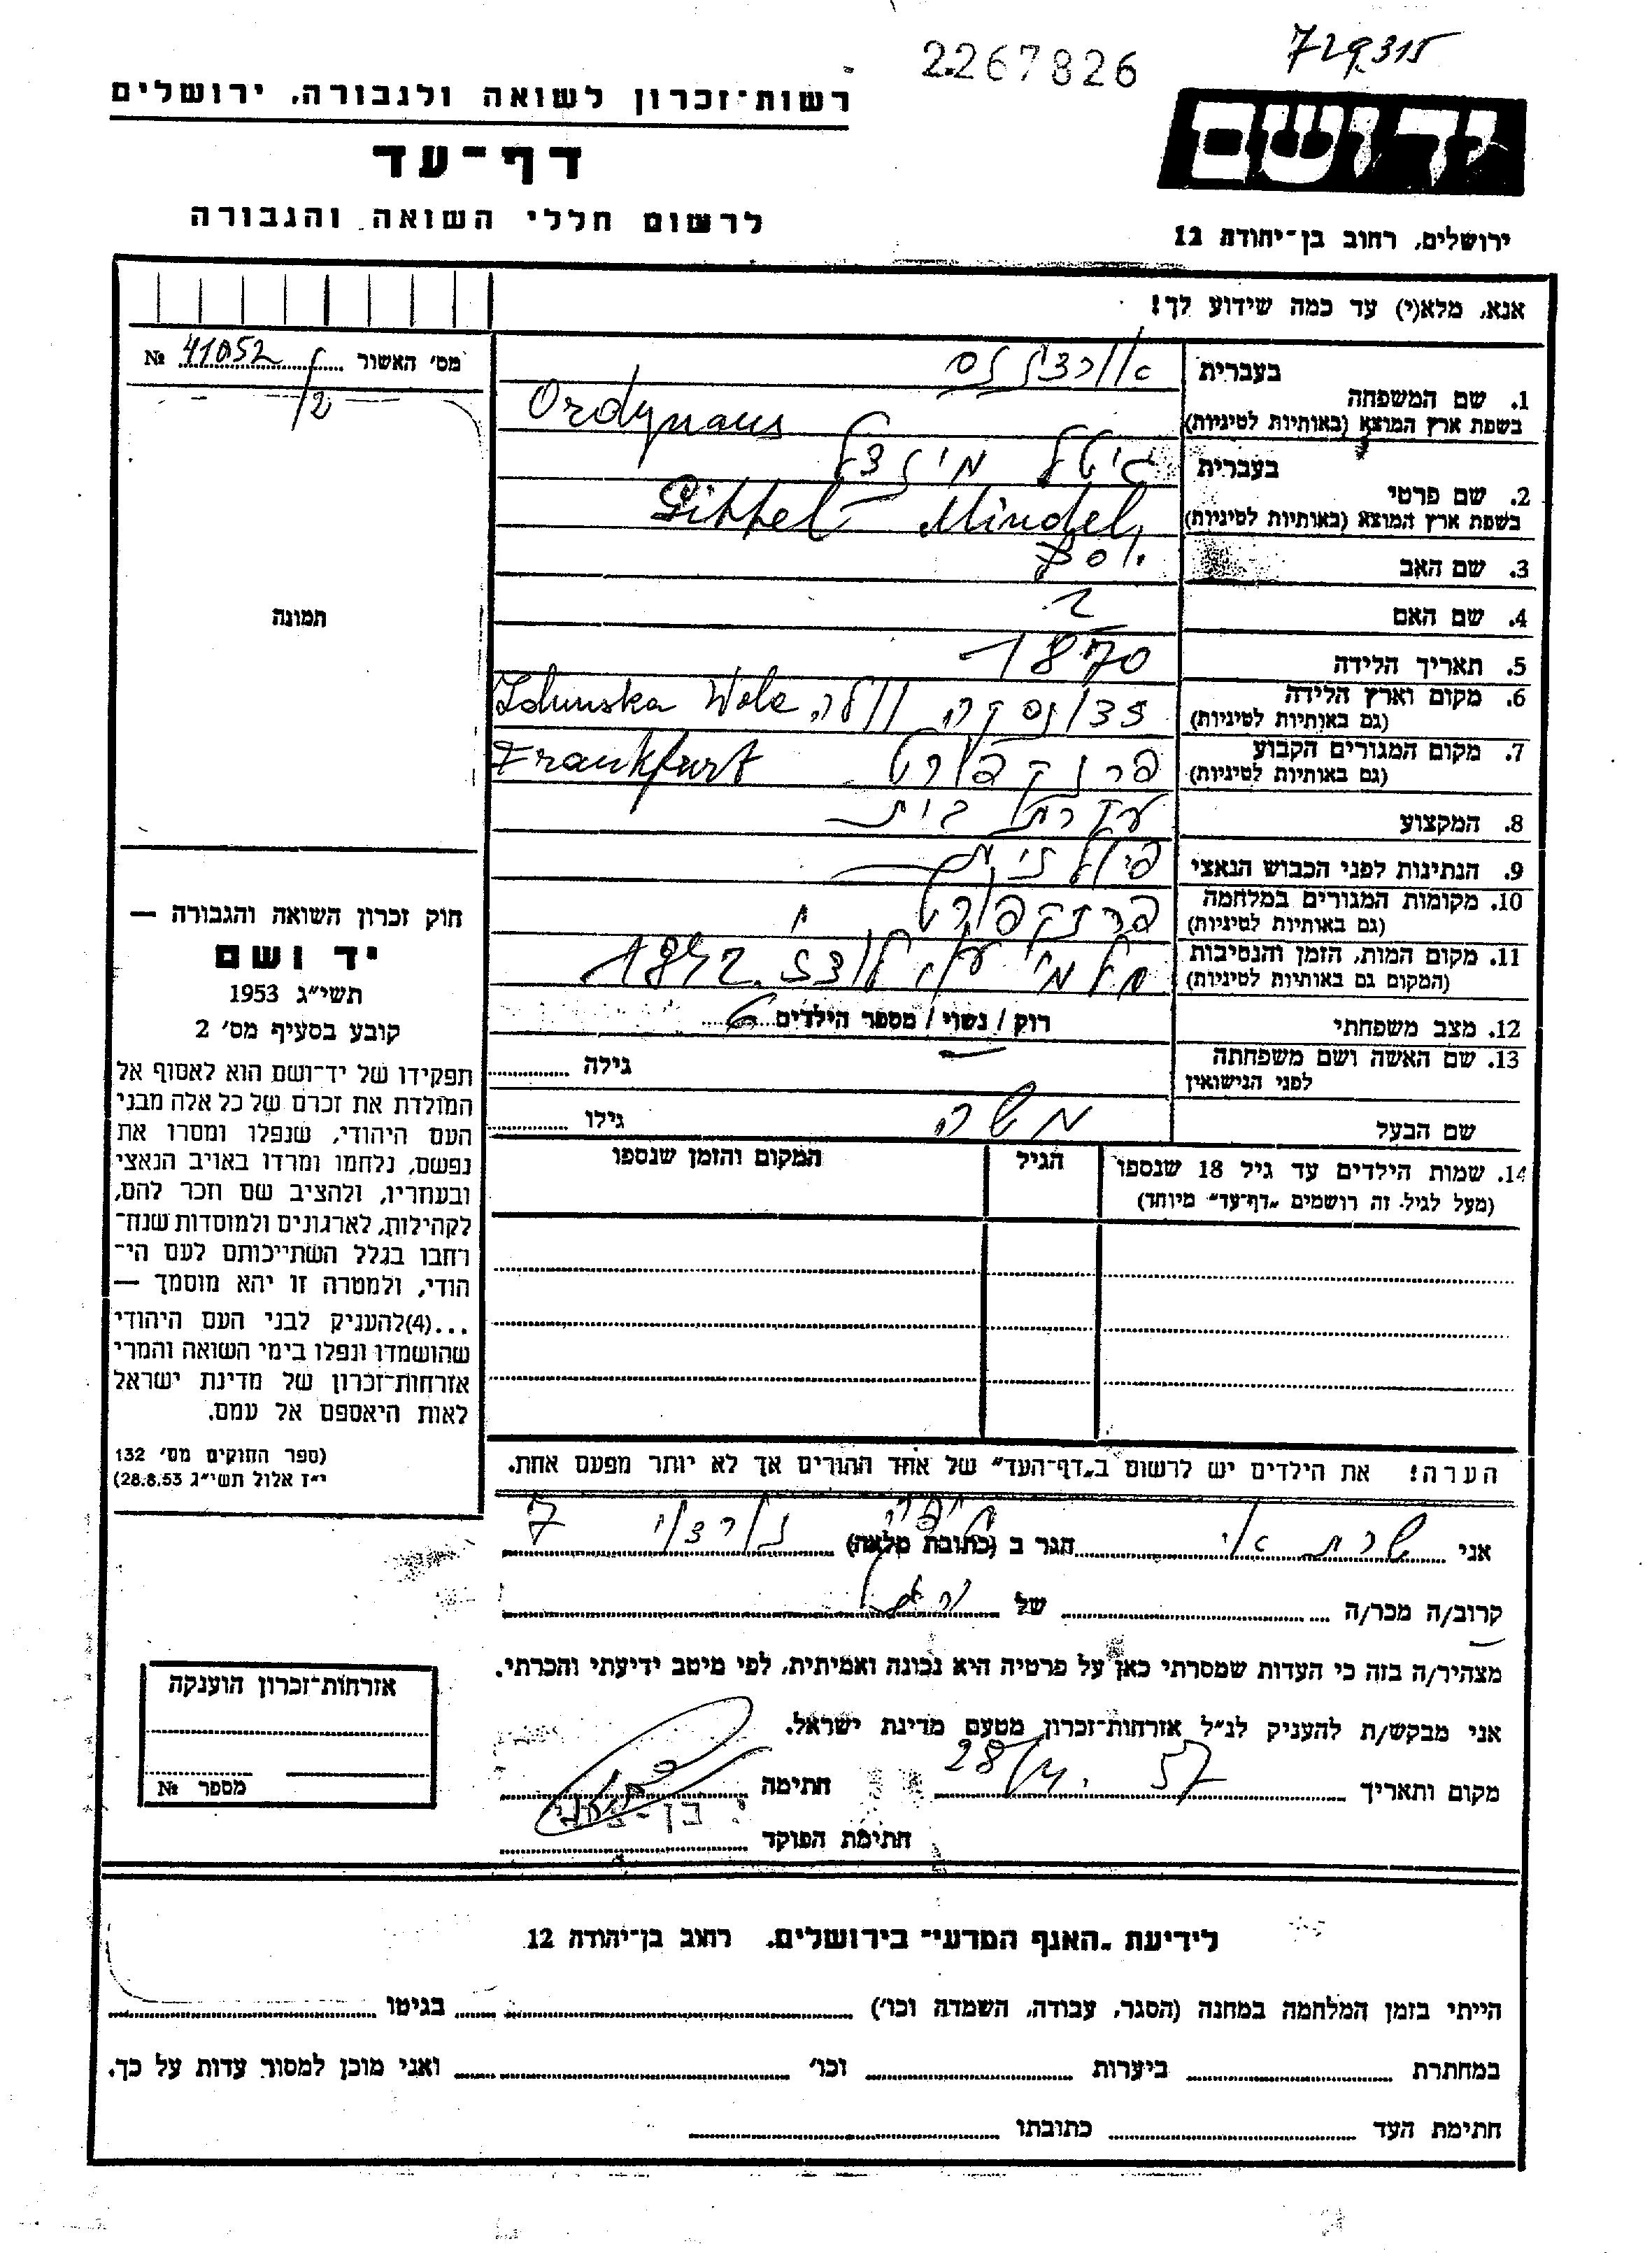 2267826
729315
רשות־זכרון לשואה ולגבורה, ירושלים
יד ושם
דף־עד
לרשום חללי השואה והגבורה
ירושלים, רחוב בן־יהודה 12
אנא, מלא(י) עד כמה שידוע לך!
מס' האשור 41052 №
/2
תמונה
1. שם המשפחה
בעברית
בשפת ארץ המוצא (באותיות לטיניות) Ordynans
2. שם פרטי
בעברית גיטל מינדל
בשפת ארץ המוצא (באותיות לטיניות) Gittel - Mindel
3. שם האב
4. שם האם
5. תאריך הלידה 1870
6. מקום וארץ הלידה
(גם באותיות לטיניות) זדונסקה וולה, Zdunska Wola
7. מקום המגורים הקבוע
(גם באותיות לטיניות) פרנקפורט Frankfurt
8. המקצוע עקרת בית
9. הנתינות לפני הכבוש הנאצי פולנית
10. מקומות המגורים במלחמה
(גם באותיות לטיניות) פרנקפורט
11. מקום המות, הזמן והנסיבות
(המקום גם באותיות לטיניות) לודז'. 1942
12. מצב משפחתי רוק / נשוי / מספר הילדים 6
13. שם האשה ושם משפחתה
לפני הנישואין גילה
שם הבעל משה גילו
14. שמות הילדים עד גיל 18 שנספו
(מעל לגיל זה רושמים „דף־עד” מיוחד)
הגיל
המקום והזמן שנספו
הערה! את הילדים יש לרשום ב„דף־העד” של אחד ההורים אך לא יותר מפעם אחת.
חוק זכרון השואה והגבורה —
יד ושם
תשי״ג 1953
קובע בסעיף מס' 2
תפקידו של יד־ושם הוא לאסוף אל
המולדת את זכרם של כל אלה מבני
העם היהודי, שנפלו ומסרו את
נפשם, נלחמו ומרדו באויב הנאצי
ובעוזריו, ולהציב שם וזכר להם,
לקהילות, לארגונים ולמוסדות שנח־
רחבו בגלל השתייכותם לעם הי־
הודי, ולמטרה זו יהא מוסמך —
...(4)להעניק לבני העם היהודי
שהושמדו ונפלו בימי השואה והמרי
אזרחות־זכרון של מדינת ישראל
לאות היאספם אל עמם.
(ספר החוקים מס' 132
י״ז אלול תשי״ג 28.8.53)
אני שרה הגר ב (כתובת מלאה) חיפה 7
קרוב/ה מכר/ה של
מצהיר/ה בזה כי העדות שמסרתי כאן על פרטיה היא נכונה ואמיתית, לפי מיטב ידיעתי והכרתי.
אני מבקש/ת להעניק לנ״ל אזרחות־זכרון מטעם מדינת ישראל.
מקום ותאריך 57 חתימה
חתימת הפוקד
אזרחות־זכרון הוענקה
מספר №
לידיעת „האגף המדעי” בירושלים, רחוב בן־יהודה 12
הייתי בזמן המלחמה במחנה (הסגר, עבודה, השמדה וכו') בגיטו
במחתרת ביערות וכו' ואני מוכן למסור עדות על כך.
חתימת העד כתובתו